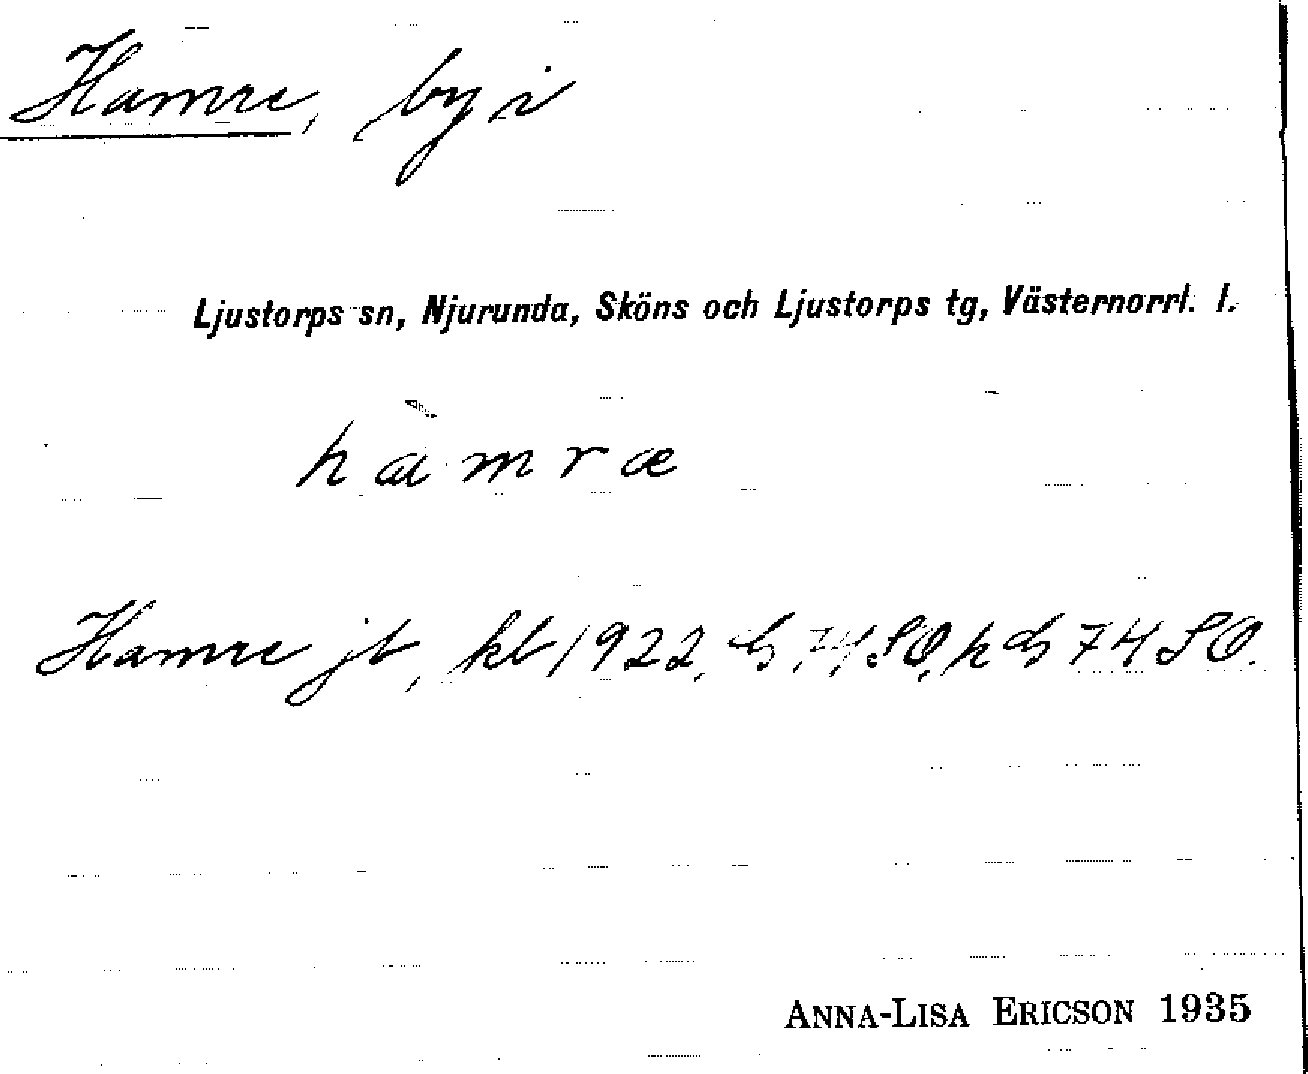 Hamre, by i
Ljustorps sn, Njurunda, Sköns och Ljustorps tg, Västernorrl. l.
hàmræ
Hamre jb, kb 1922, 74 SO, 74 SO.
ANNA-LISA ERICSON 1935